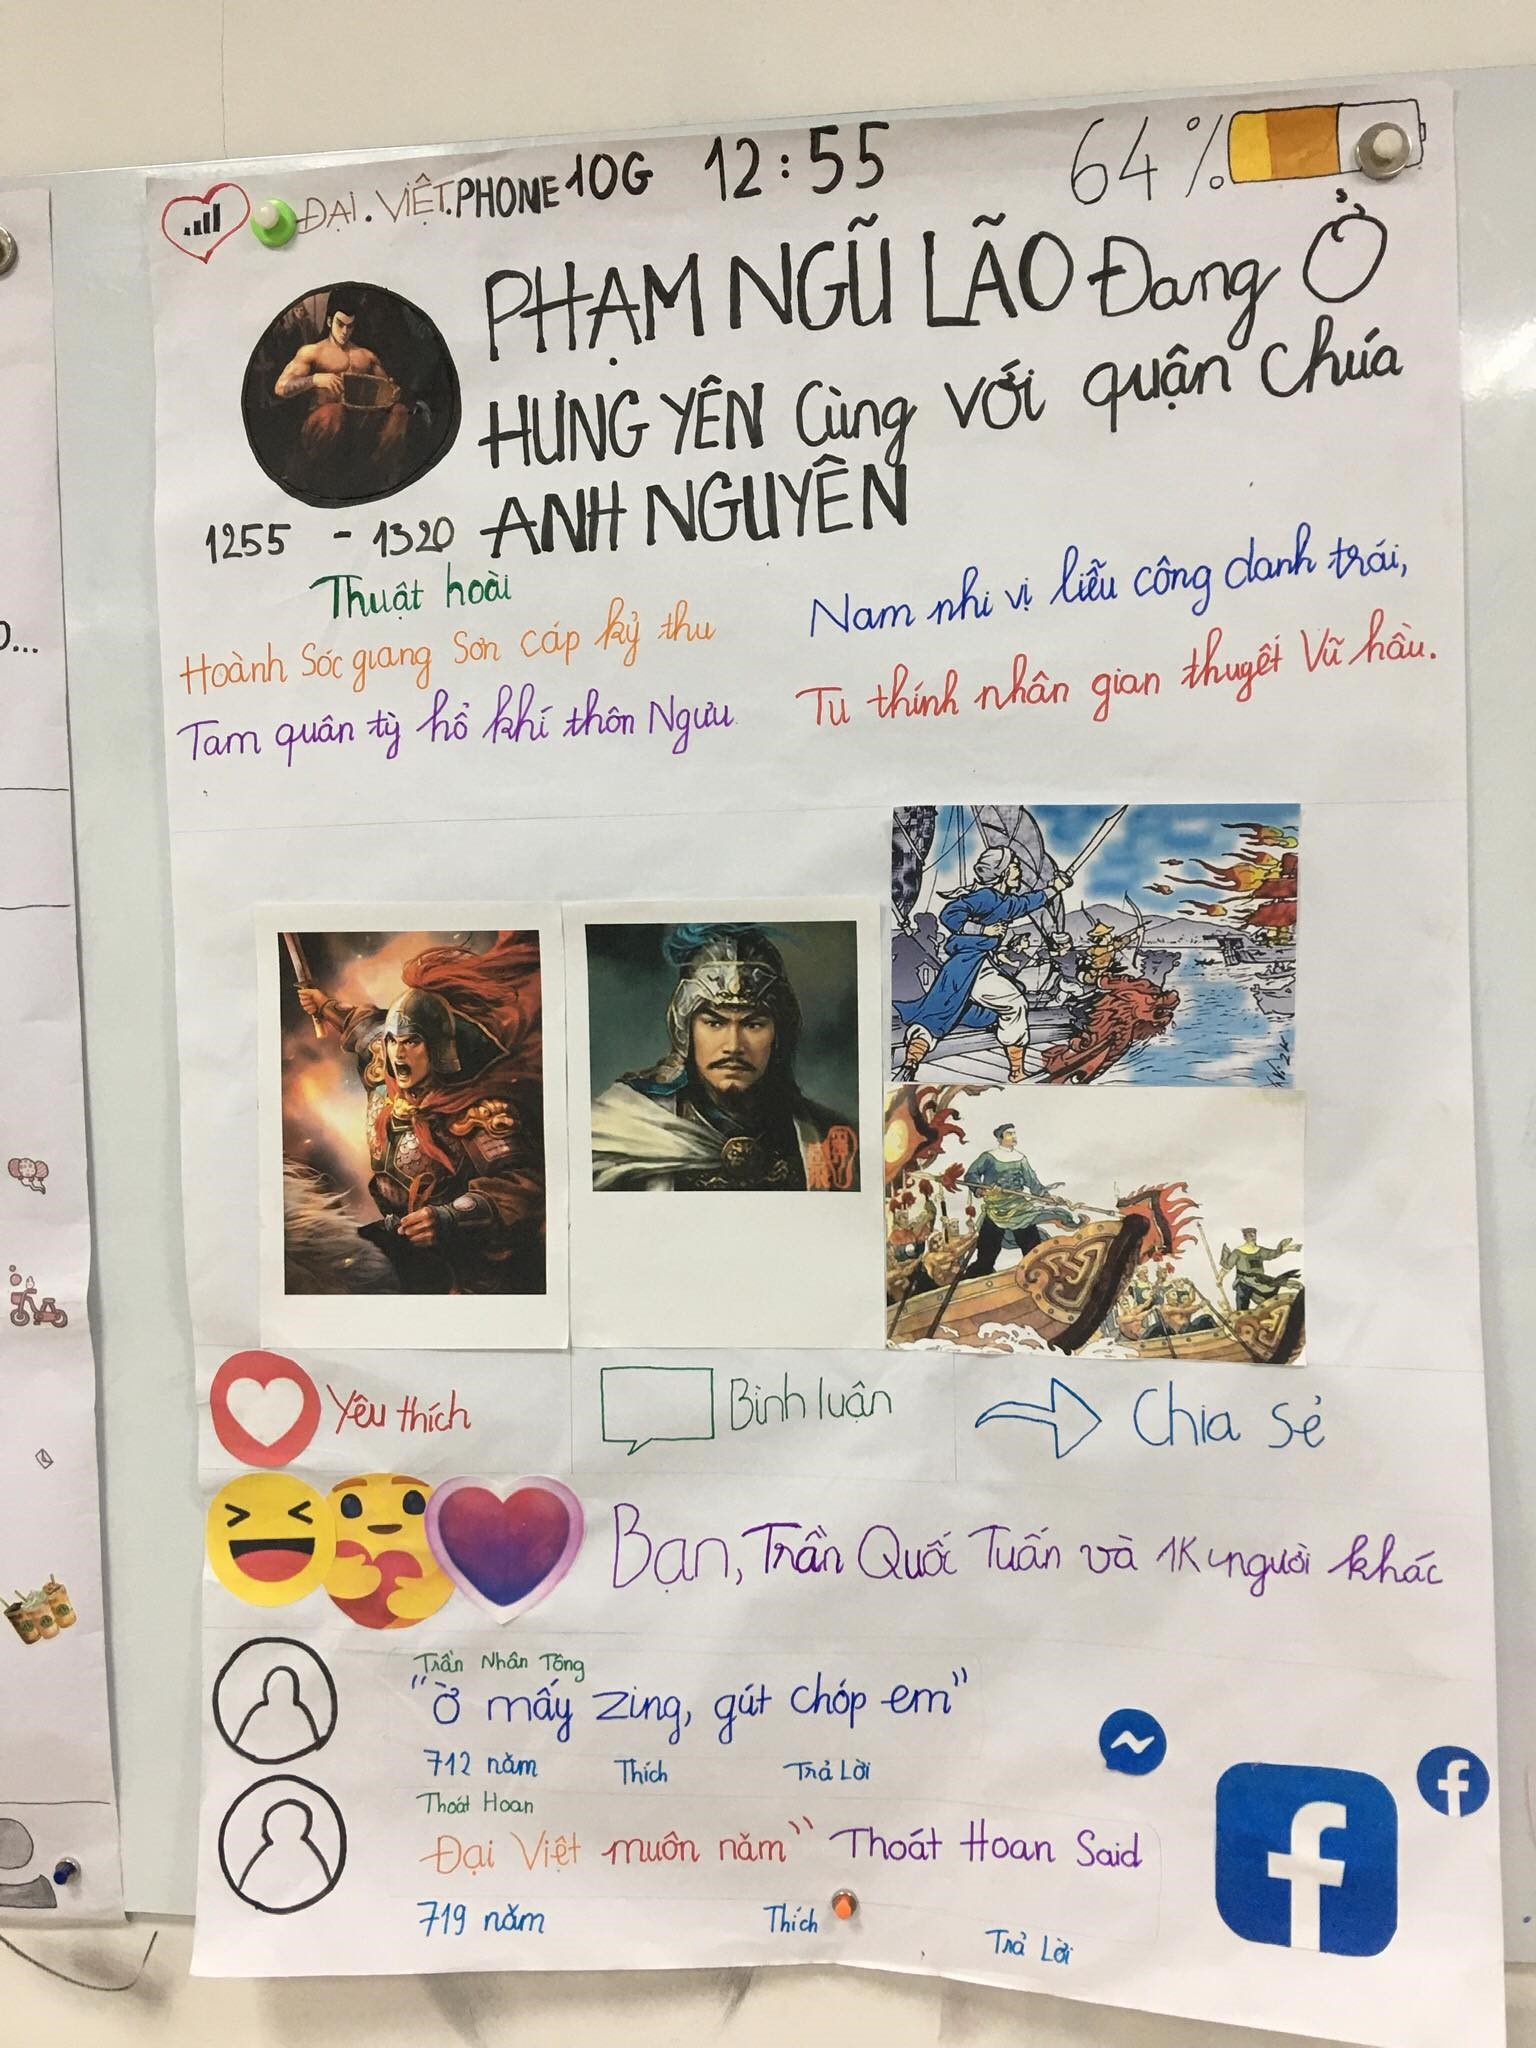 ĐẠI.VIỆT.PHONE 10G 12:55 64%
PHẠM NGŨ LÃO Đang Ở
HƯNG YÊN Cùng với quận Chúa
ANH NGUYÊN
1255 - 1320
Thuật hoài
Hoành Sóc giang Sơn cáp kỷ thu
Tam quân tỳ hổ khí thôn Ngưu
Nam nhi vị liễu công danh trái,
Tu thính nhân gian thuyết Vũ hầu.
Yêu thích
Bình luận
Chia sẻ
Bạn, Trần Quốc Tuấn và 1K người khác
Trần Nhân Tông
"Ờ mấy zing, gút chóp em"
712 năm Thích Trả Lời
Thoát Hoan
Đại Việt muôn năm" Thoát Hoan Said
719 năm Thích Trả Lời